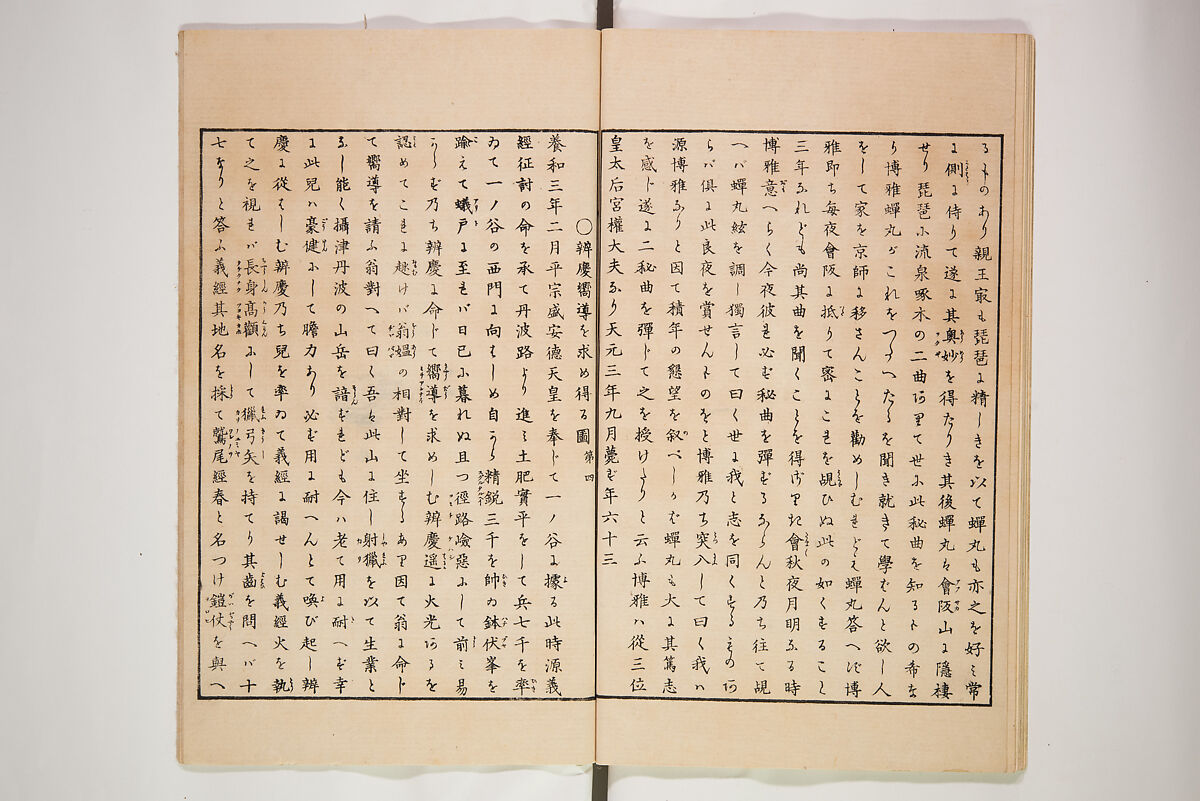 るものあり親王最も琵琶に精しきを以て蟬丸も亦之を好ミ常
に側に侍りて遂に其奥妙を得たりき其後蟬丸ハ會阪山に隱棲
せり琵琶に流泉啄木の二曲ありて世に此秘曲を知るもの希な
り博雅蟬丸がこれをつたへたるを聞き就きて學ばんと欲し人
をして家を京師に移さんことを勸めしむれども蟬丸答へず博
雅即ち毎夜會阪に抵りて密にこれを覘ひぬ此の如くすること
三年なれども尚其曲を聞くことを得ざりき會秋夜月明なる時
博雅意へらく今夜彼れ必ず秘曲を彈ずるならんと乃ち往て覘
へバ蟬丸絃を調し獨言して曰く世に我と志を同くするものあ
らバ俱に此良夜を賞せんものをと博雅乃ち突入して曰く我ハ
源博雅なりと因て積年の懇望を叙べしかば蟬丸も大に其篤志
を感じ遂に二秘曲を彈じて之を授けたりと云ふ博雅ハ從三位
皇太后宮權大夫なり天元三年九月薨ず年六十三
〇辨慶嚮導を求め得る圖 第四
養和三年二月平宗盛安德天皇を奉じて一ノ谷に據る此時源義
經征討の命を承て丹波路より進ミ土肥實平をして兵七千を率
ゐて一ノ谷の西門に向はしめ自から精鋭三千を帥ゐ鉢伏峯を
踰えて蟻戸に至れバ日已に暮れぬ且つ徑路嶮惡にして前ミ易
からず乃ち辨慶に命じて嚮導を求めしむ辨慶遥に火光あるを
認めてこれに趣けバ翁媼の相對して坐するあり因て翁に命じ
て嚮導を請ふ翁對へて曰く吾ハ此山に住し射獵を以て生業と
なし能く攝津丹波の山岳を諳ずれども今ハ老て用に耐へず幸
に此兒ハ豪健にして膽力あり必ず用に耐へんとて喚び起し辨
慶に從はしむ辨慶乃ち兒を率ゐて義經に謁せしむ義經火を執
て之を視れバ長身高顴にして獵弓矢を持てり其齒を問へバ十
七なりと答ふ義經其地名を採て鷲尾經春と名つけ鎧仗を與へ